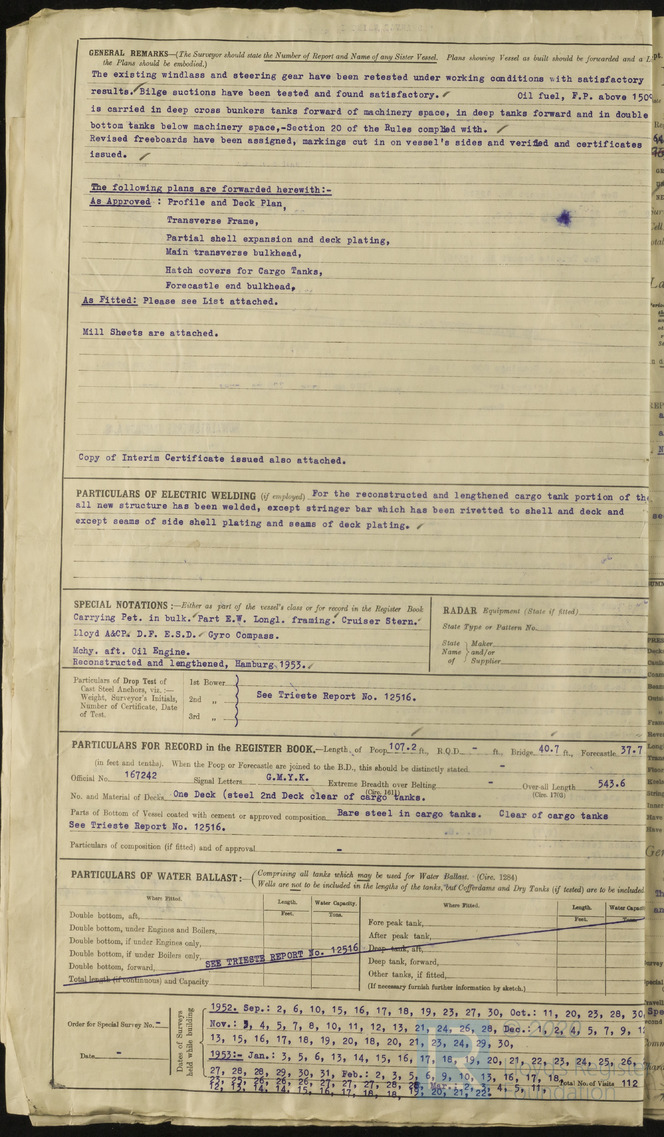 GENERAL REMARKS—(The Surveyor should state the Number of Report and Name of any Sister Vessel. Plans showing Vessel as built should be forwarded and a
the Plans should be embodied.)
The existing windlass and steering gear have been retested under working conditions with satisfactory
results. Bilge suctions have been tested and found satisfactory. Oil fuel, F.P. above 150°
is carried in deep cross bunkers tanks forward of machinery space, in deep tanks forward and in double
bottom tanks below machinery space,-Section 20 of the Rules complied with.
Revised freeboards have been assigned, markings cut in on vessel's sides and verified and certificates
issued.
The following plans are forwarded herewith:-
As Approved : Profile and Deck Plan,
Transverse Frame,
Partial shell expansion and deck plating,
Main transverse bulkhead,
Hatch covers for Cargo Tanks,
Forecastle end bulkhead,
As Fitted: Please see List attached.
Mill Sheets are attached.
Copy of Interim Certificate issued also attached.
PARTICULARS OF ELECTRIC WELDING (if employed) For the reconstructed and lengthened cargo tank portion of the
all new structure has been welded, except stringer bar which has been rivetted to shell and deck and
except seams of side shell plating and seams of deck plating.
SPECIAL NOTATIONS :—Either as part of the vessel's class or for record in the Register Book
Carrying Pet. in bulk. Part E.W. Longl. framing. Cruiser Stern.
Lloyd A&CP. D.F. E.S.D. Gyro Compass.
Mchy. aft. Oil Engine.
Reconstructed and lengthened, Hamburg 1953.
RADAR Equipment (State if fitted)
State Type or Pattern No.
State Maker
Name and/or
of Supplier
Particulars of Drop Test of
Cast Steel Anchors, viz. :—
Weight, Surveyor's Initials,
Number of Certificate, Date
of Test.
1st Bower
2nd „
3rd „
See Trieste Report No. 12516.
PARTICULARS FOR RECORD in the REGISTER BOOK.—Length, of Poop 107.2 ft., R.Q.D. - ft., Bridge 40.7 ft., Forecastle 37.7
(in feet and tenths). When the Poop or Forecastle are joined to the B.D., this should be distinctly stated -
Official No. 167242 Signal Letters G.M.Y.K. Extreme Breadth over Belting - Over-all Length 543.6
(Circ. 1611) (Circ. 1703)
No. and Material of Decks One Deck (steel 2nd Deck clear of cargo tanks.
Parts of Bottom of Vessel coated with cement or approved composition Bare steel in cargo tanks. Clear of cargo tanks
See Trieste Report No. 12516.
Particulars of composition (if fitted) and of approval -
PARTICULARS OF WATER BALLAST:— (Comprising all tanks which may be used for Water Ballast. (Circ. 1284)
Wells are not to be included in the lengths of the tanks, but Cofferdams and Dry Tanks (if tested) are to be included
Where Fitted. Length. Water Capacity. Where Fitted. Length. Water
Feet. Tons. Feet. Tons
Double bottom, aft,
Double bottom, under Engines and Boilers,
Double bottom, if under Engines only,
Double bottom, if under Boilers only,
Double bottom, forward,
Total length (if continuous) and Capacity
SEE TRIESTE REPORT No. 12516
Fore peak tank,
After peak tank,
Deep tank, aft,
Deep tank, forward,
Other tanks, if fitted,
(If necessary furnish further information by sketch.)
Order for Special Survey No. -
Date -
Dates of Surveys
held while building
1952. Sep.: 2, 6, 10, 15, 16, 17, 18, 19, 23, 27, 30, Oct.: 11, 20, 23, 28, 30,
Nov.: 3, 4, 5, 7, 8, 10, 11, 12, 13, 21, 24, 26, 28, Dec.: 1, 2, 4, 5, 7, 9,
13, 15, 16, 17, 18, 19, 20, 18, 20, 21, 23, 24, 29, 30,
1953:- Jan.: 3, 5, 6, 13, 14, 15, 16, 17, 18, 19, 20, 21, 22, 23, 24, 25, 26,
27, 28, 28, 29, 30, 31, Feb.: 2, 3, 5, 6, 9, 10, 13, 16, 17, 18,
Total No. of Visits 112